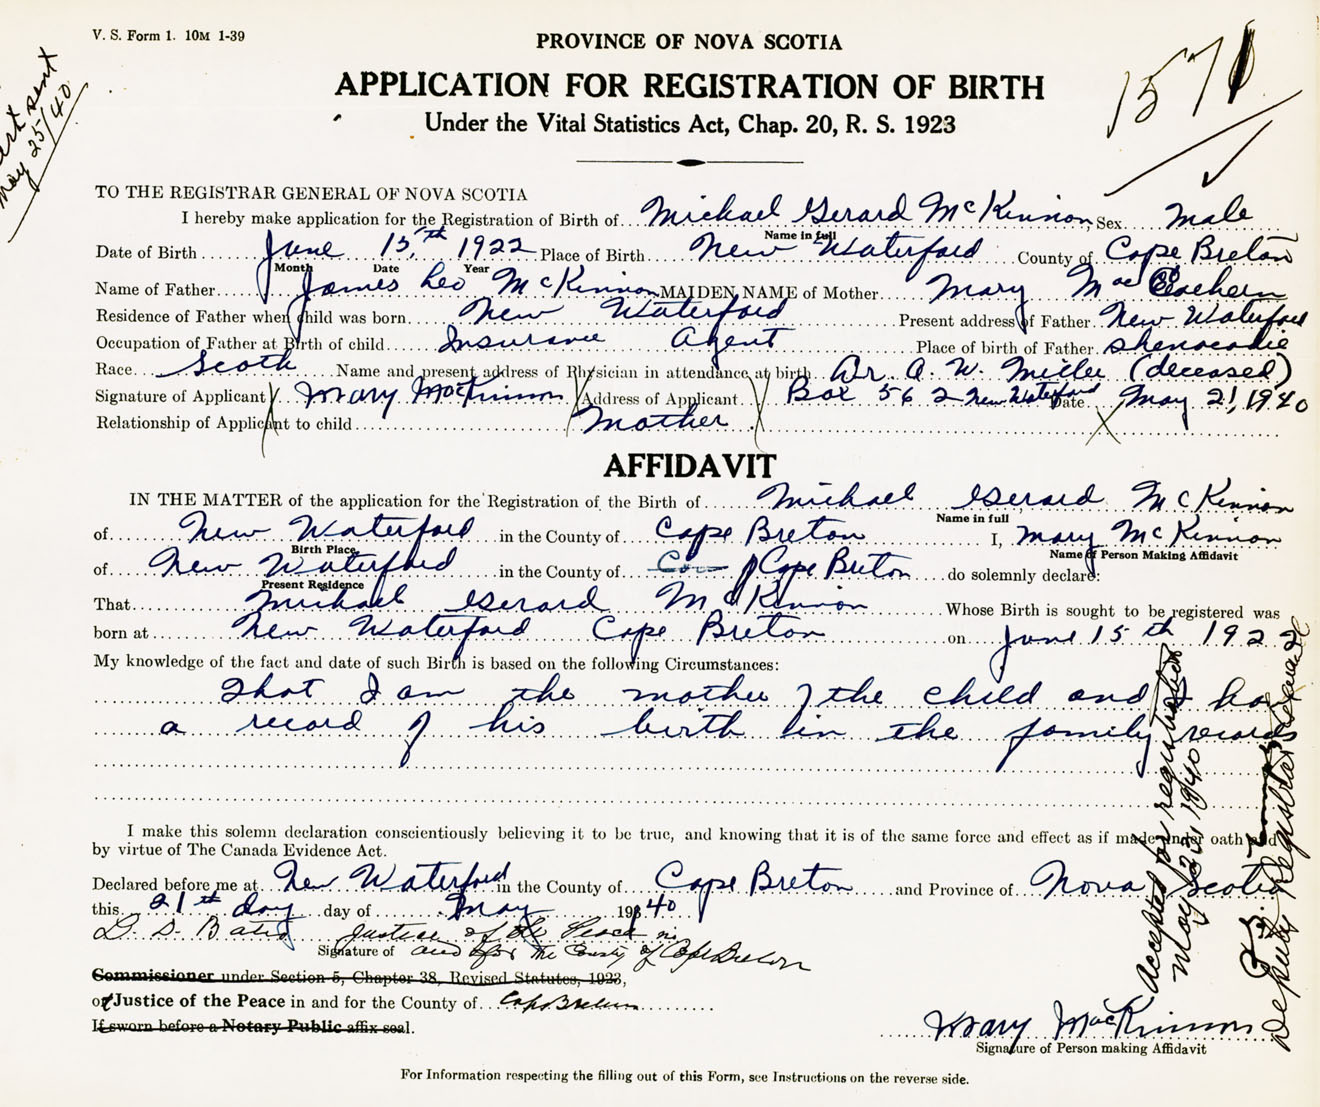 V. S. Form 1. 10M 1-39
PROVINCE OF NOVA SCOTIA
APPLICATION FOR REGISTRATION OF BIRTH
Under the Vital Statistics Act, Chap. 20, R. S. 1923
1571
sent
May 25/40
TO THE REGISTRAR GENERAL OF NOVA SCOTIA
I hereby make application for the Registration of Birth of Michael Gerard McKinnon, Sex Male
Name in full
Date of Birth June 15th 1922 Place of Birth New Waterford County of Cape Breton
Month Date Year
Name of Father James Leo McKinnon MAIDEN NAME of Mother Mary MacEachern
Residence of Father when child was born New Waterford Present address of Father New Waterford
Occupation of Father at Birth of child Insurance Agent Place of birth of Father Shenacadie
Race Scoth Name and present address of Physician in attendance at birth Dr. A. W. Miller (deceased)
Signature of Applicant Mary MacKinnon Address of Applicant Box 562 New Waterford Date May 21, 1940
Relationship of Applicant to child Mother
AFFIDAVIT
IN THE MATTER of the application for the Registration of the Birth of Michael Gerard McKinnon
Name in full
of New Waterford in the County of Cape Breton I, Mary McKinnon
Birth Place Name of Person Making Affidavit
of New Waterford in the County of Cape Breton do solemnly declare:
Present Residence
That Michael Gerard McKinnon Whose Birth is sought to be registered was
born at New Waterford Cape Breton on June 15th 1922
My knowledge of the fact and date of such Birth is based on the following Circumstances:
That I am the mother of the child and
a record of his birth in the family records
I make this solemn declaration conscientiously believing it to be true, and knowing that it is of the same force and effect as if made under oath and
by virtue of The Canada Evidence Act.
Declared before me at New Waterford in the County of Cape Breton and Province of Nova Scotia
this 21st day day of May 1940
Justice of the Peace in
Signature of and for the County of Cape Breton
Commissioner under Section 5, Chapter 38, Revised Statutes, 1923,
or Justice of the Peace in and for the County of Cape Breton
If sworn before a Notary Public affix seal.
Mary MacKinnon
Signature of Person making Affidavit
For Information respecting the filling out of this Form, see Instructions on the reverse side.
Accepted for registration
May 23 1940
Deputy Registrar General